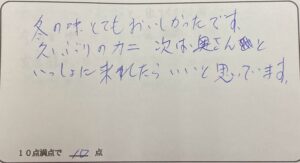 冬の味とてもおいしかったです。
久しぶりのカニ 次は奥さんと
いっしょに来れたらいいと思っています。
10点満点で 10 点